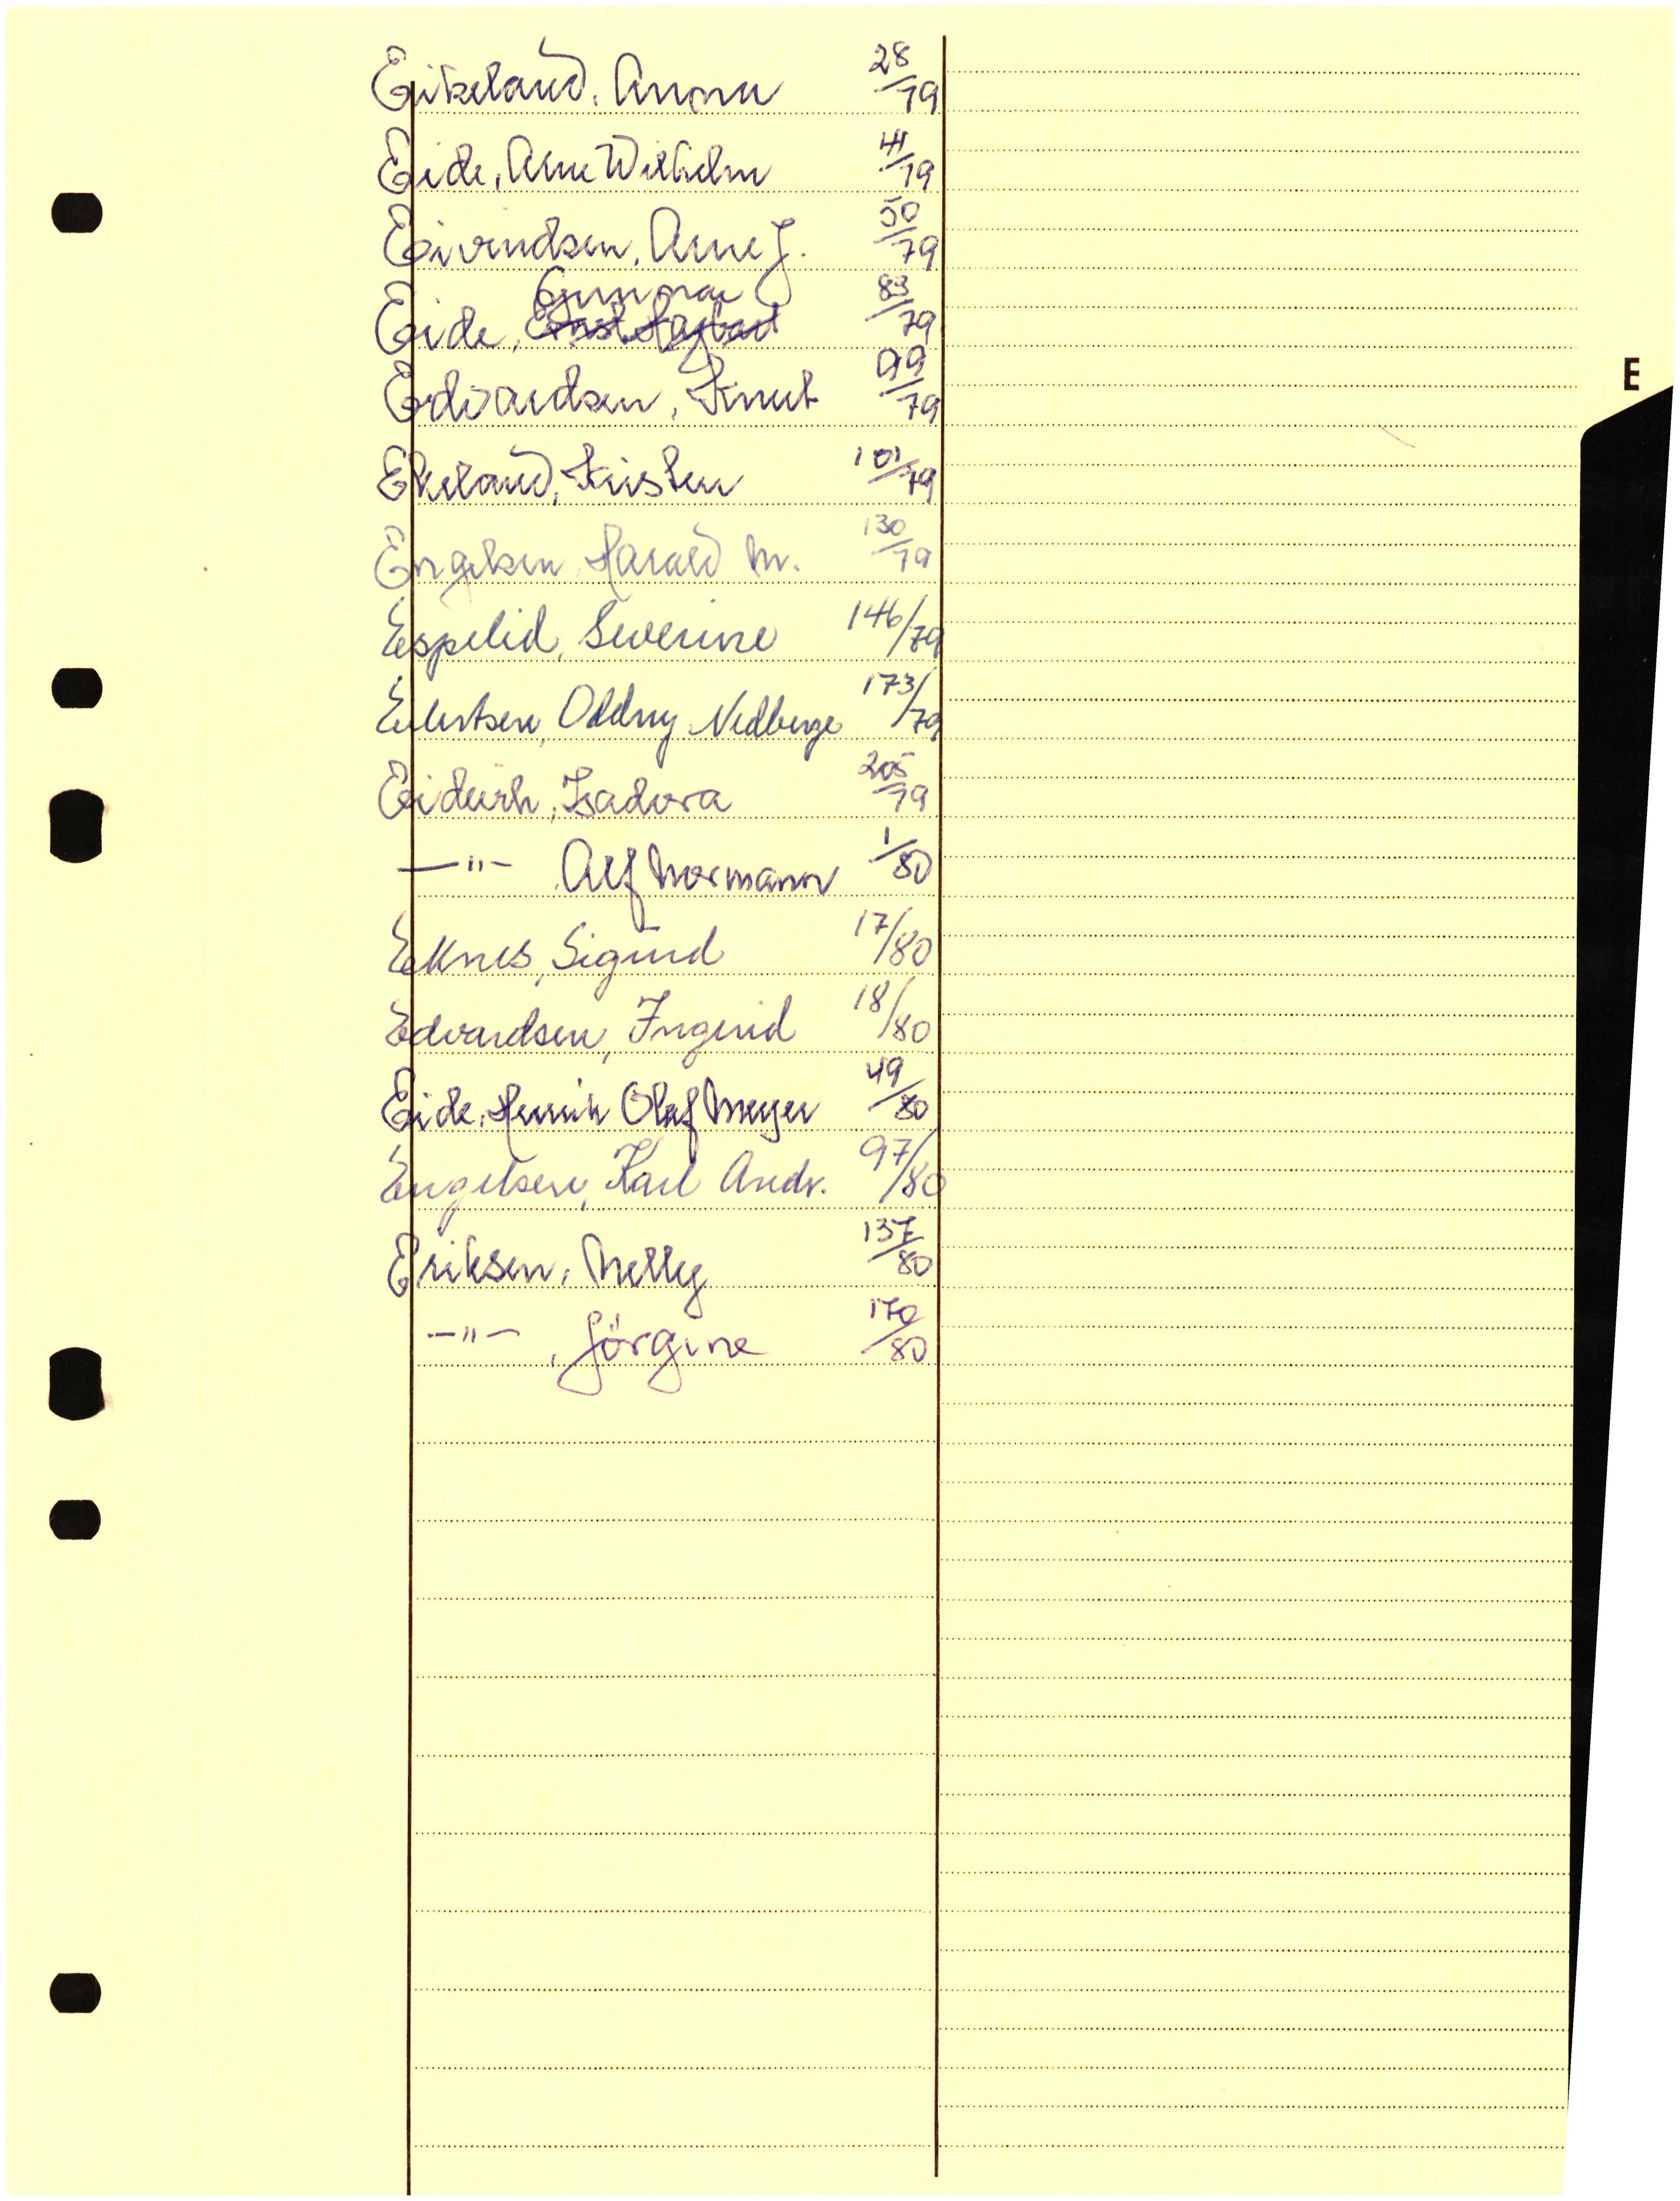 Eikeland, Anna 28/79
Eide, Arne Wilhelm 41/79
Eivindsen, Arne J. 50/79
Gunnar
Eide, 83/79
Edvardsen, Knut 99/79
E
Ekeland, Kristen 101/79
Engelsen, Harald M. 130/79
Espelid, Severine 146/79
Evertsen, Oddny Nedberge 173/79
Eidevik, Isadora 205/79
—"— , Alf Normann 1/80
Eknes, Sigurd 17/80
Edvardsen, Ingerid 18/80
Eide, Henrik Olaf Meyer 49/80
Engelsen, Karl Andr. 97/80
Eriksen, Nelly 137/80
—"— , Jörgine 170/80